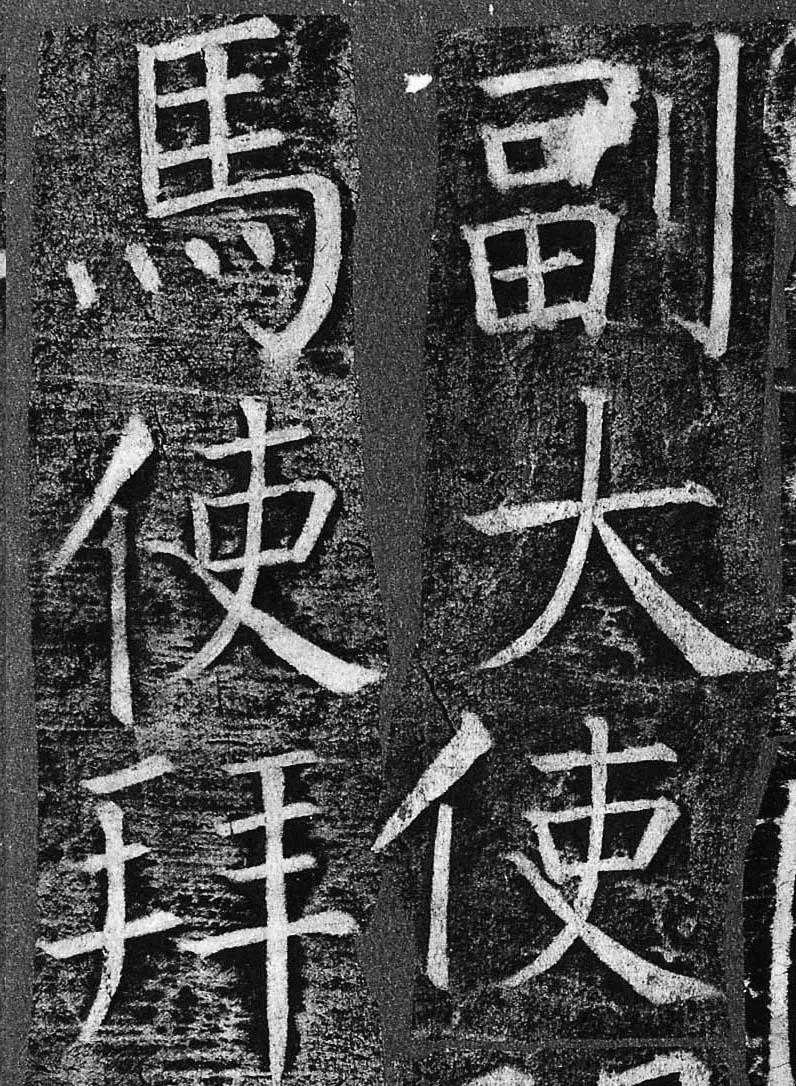 副大使
馬使拜